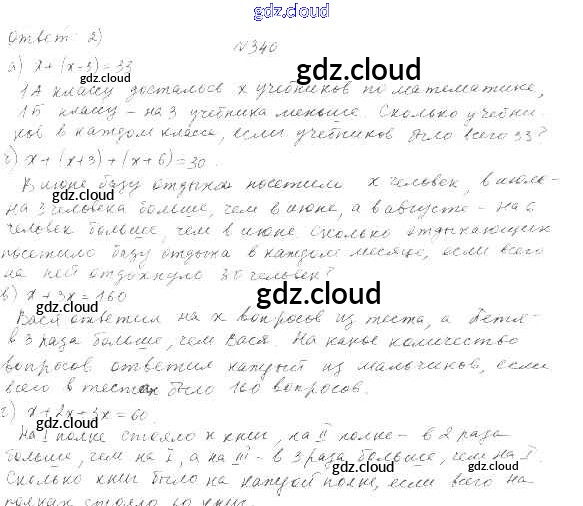 gdz.cloud
Ответ: 2)
№340
а) x + (x-3) = 33
1А классу досталось x учебников по математике,
1Б классу - на 3 учебника меньше. Сколько учебни-
ков в каждом классе, если учебников было всего 33?
б) x + (x+3) + (x+6) = 30.
В июне базу отдыха посетило x человек, в июле-
на 3 человека больше, чем в июне, а в августе - на 6
человек больше, чем в июне. Сколько отдыхающих
посетило базу отдыха в каждом месяце, если всего
на ней отдохнуло 30 человек?
в) x + 3x = 160
Вася ответил на x вопросов из теста, а Петя-
в 3 раза больше, чем Вася. На какое количество
вопросов ответил каждый из мальчиков, если
всего в тестах было 160 вопросов.
г) x + 2x + 3x = 60.
На I полке стояло x книг, на II полке - в 2 раза
больше, чем на I, а на III - в 3 раза больше, чем на I.
Сколько книг было на каждой полке, если всего на
полках стояло 60 книг.
gdz.cloud
gdz.cloud
gdz.cloud
gdz.cloud
gdz.cloud
gdz.cloud
gdz.cloud
gdz.cloud
gdz.cloud
gdz.cloud